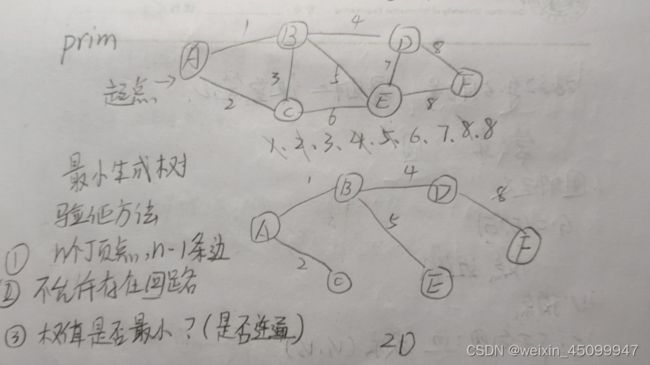 prim
1
4
A
B
D
8
起点→
3
5
7
F
2
C
6
E
8
1、2、3、4、5、6、7、8、8
最小生成树
验证方法
1
B
4
D
8
A
5
F
① n个顶点,n-1条边
2
C
E
② 不允许存在回路
③ 权值是否最小?(是否连通)
20
CSDN @weixin_45099947